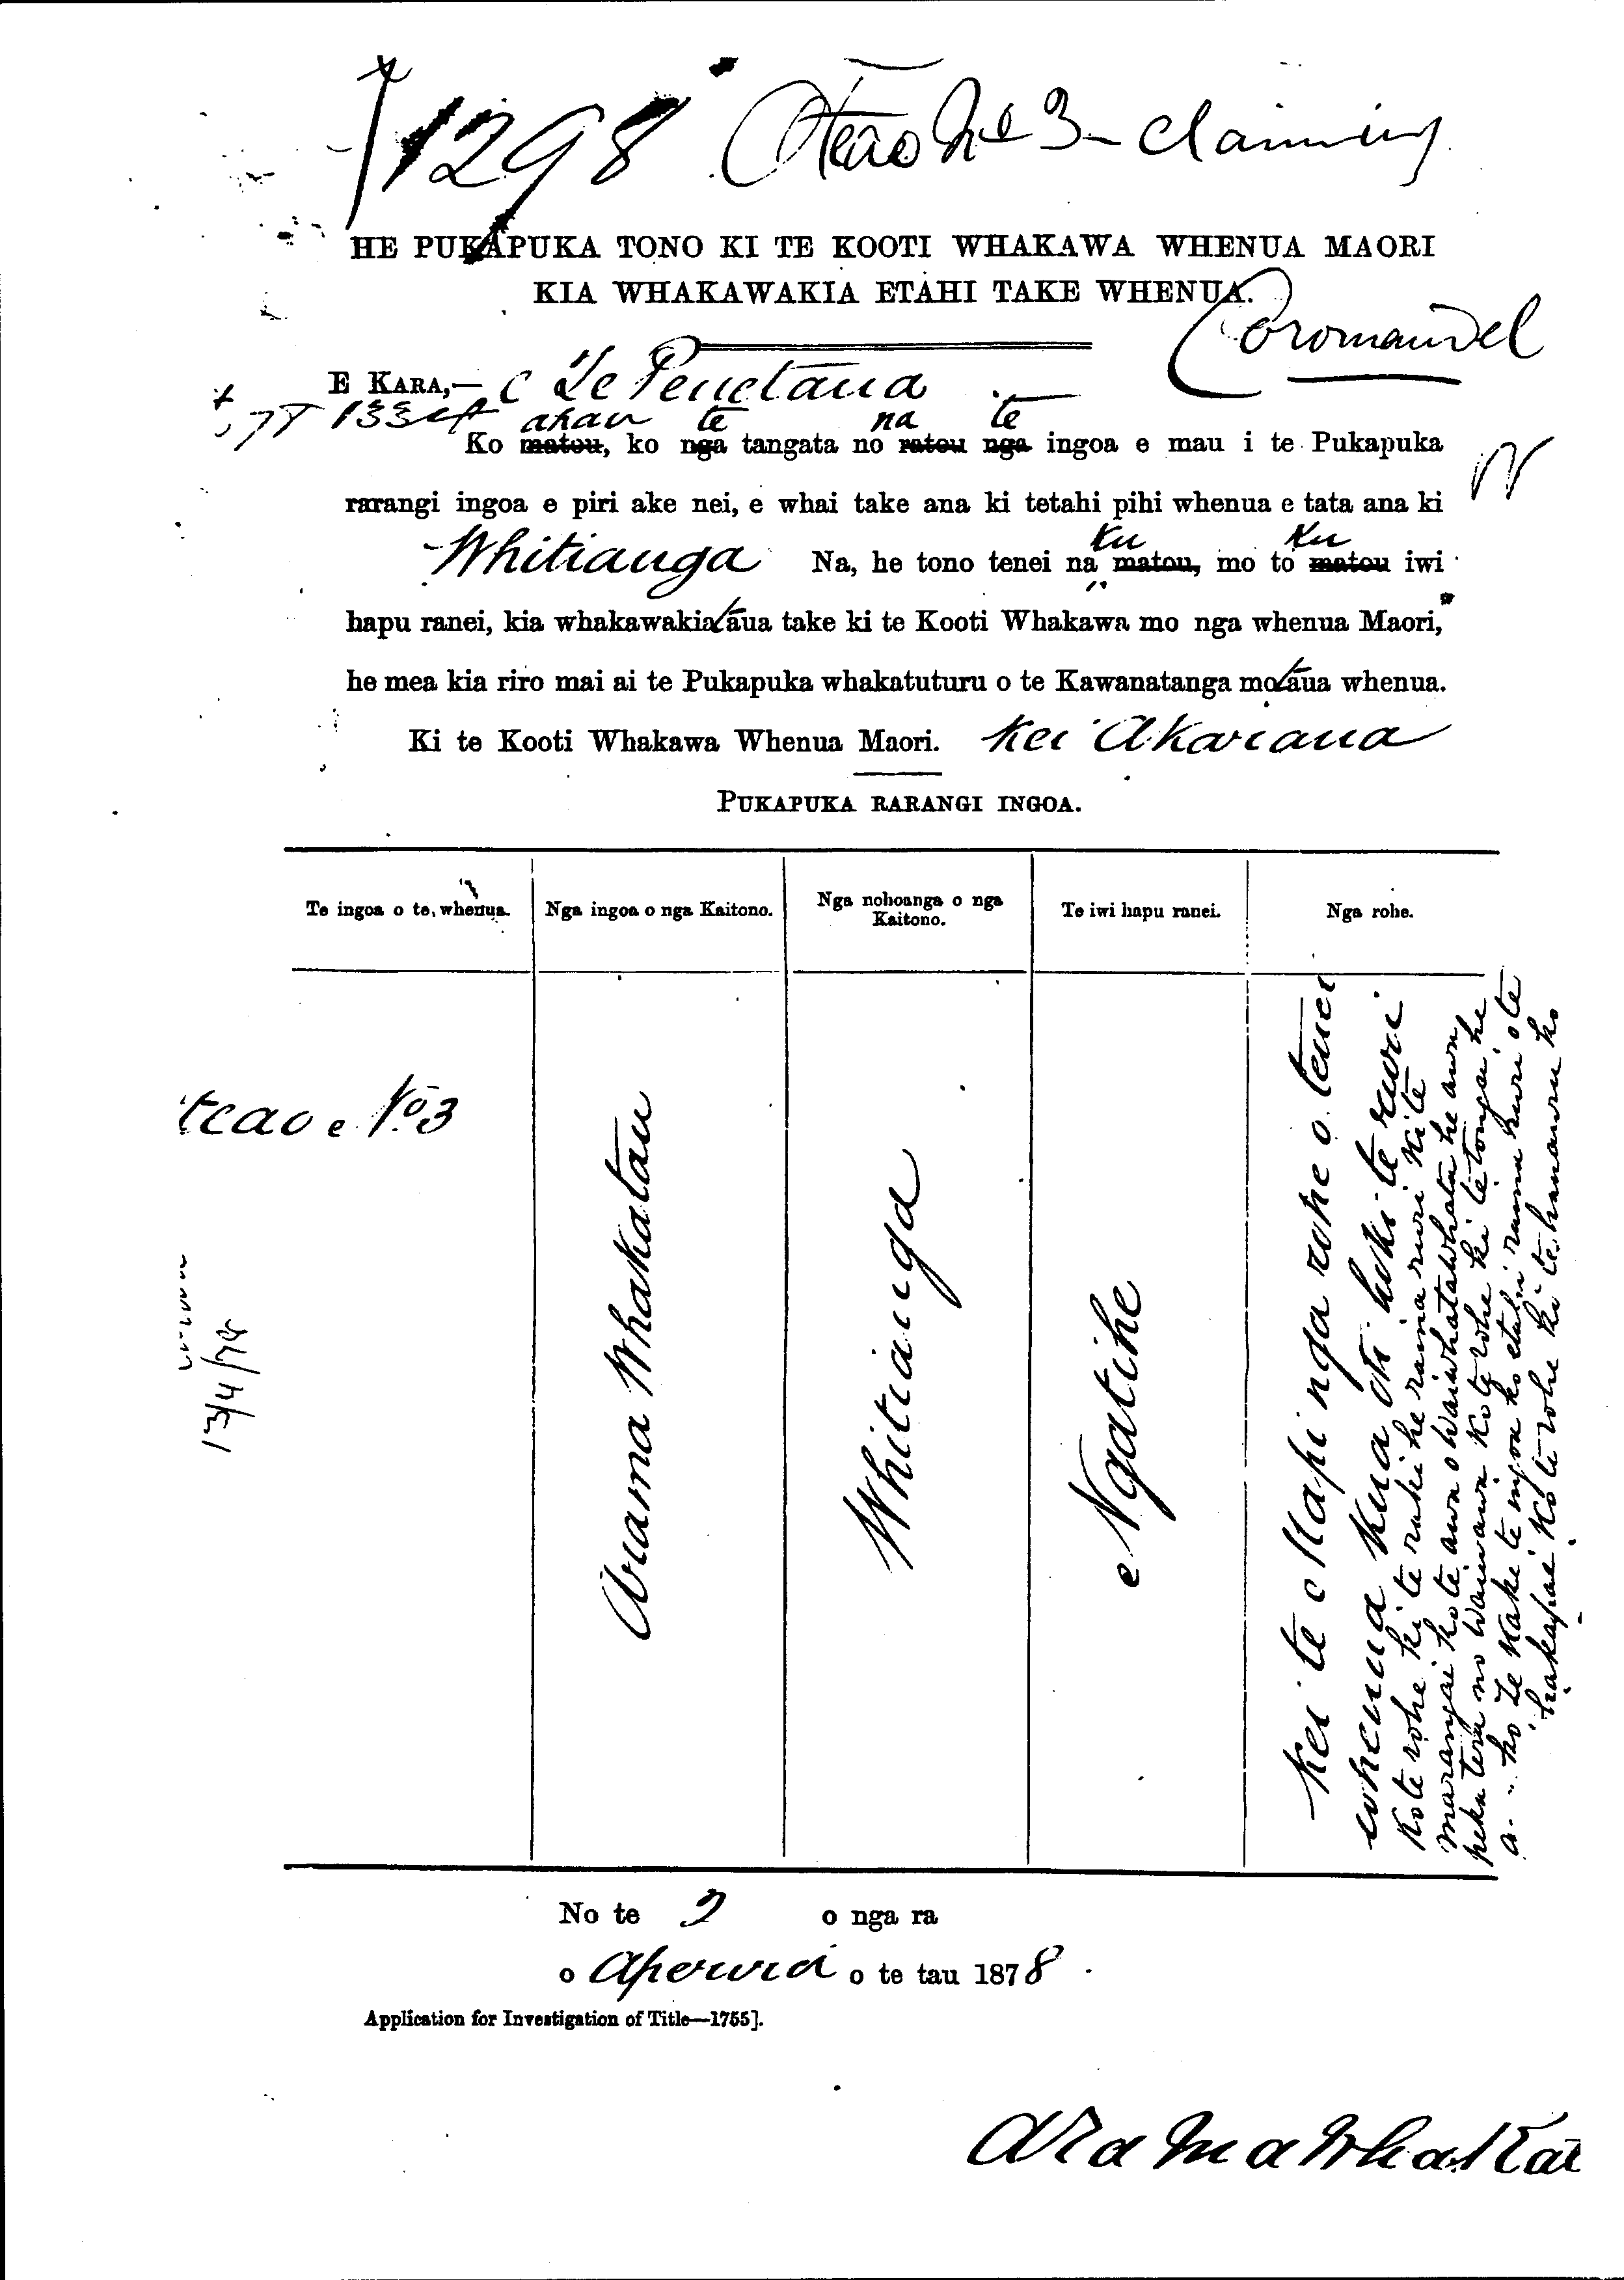 1298 Oteao No 3 - claiming
HE PUKAPUKA TONO KI TE KOOTI WHAKAWA WHENUA MAORI
KIA WHAKAWAKIA ETAHI TAKE WHENUA.
Coromandel
E KARA,— Te Penetana
ahau te na te
Ko matou, ko nga tangata no ratou nga ingoa e mau i te Pukapuka
rarangi ingoa e piri ake nei, e whai take ana ki tetahi pihi whenua e tata ana ki
ku ku
Whitianga Na, he tono tenei na matou, mo to matou iwi
hapu ranei, kia whakawakia taua take ki te Kooti Whakawa mo nga whenua Maori,
he mea kia riro mai ai te Pukapuka whakatuturu o te Kawanatanga mo taua whenua.
Ki te Kooti Whakawa Whenua Maori. Kei Akarana
PUKAPUKA RARANGI INGOA.
Te ingoa o te whenua.
Nga ingoa o nga Kaitono.
Nga nohoanga o nga
Kaitono.
Te iwi hapu ranei.
Nga rohe.
teao No 3
13/4/78
Arama Whakatau
Whitianga
Ngatihe
Kei te Mapi nga rohe o tenei
whenua kua oti hoki te ruri
Ko te rohe ki te raki he raina ruri ki te
marangai ko te awa o Waiwhatawhata he awa
peka tera no Waiwawa ko te rohe ki te tonga he
a - ko Te Kaki te ingoa ko etahi raina ruri o te
hakapai ko te rohe ki te hauauru ko
No te 2 o nga ra
o Aperira o te tau 1878
Application for Investigation of Title—1755].
Arama Whakatau